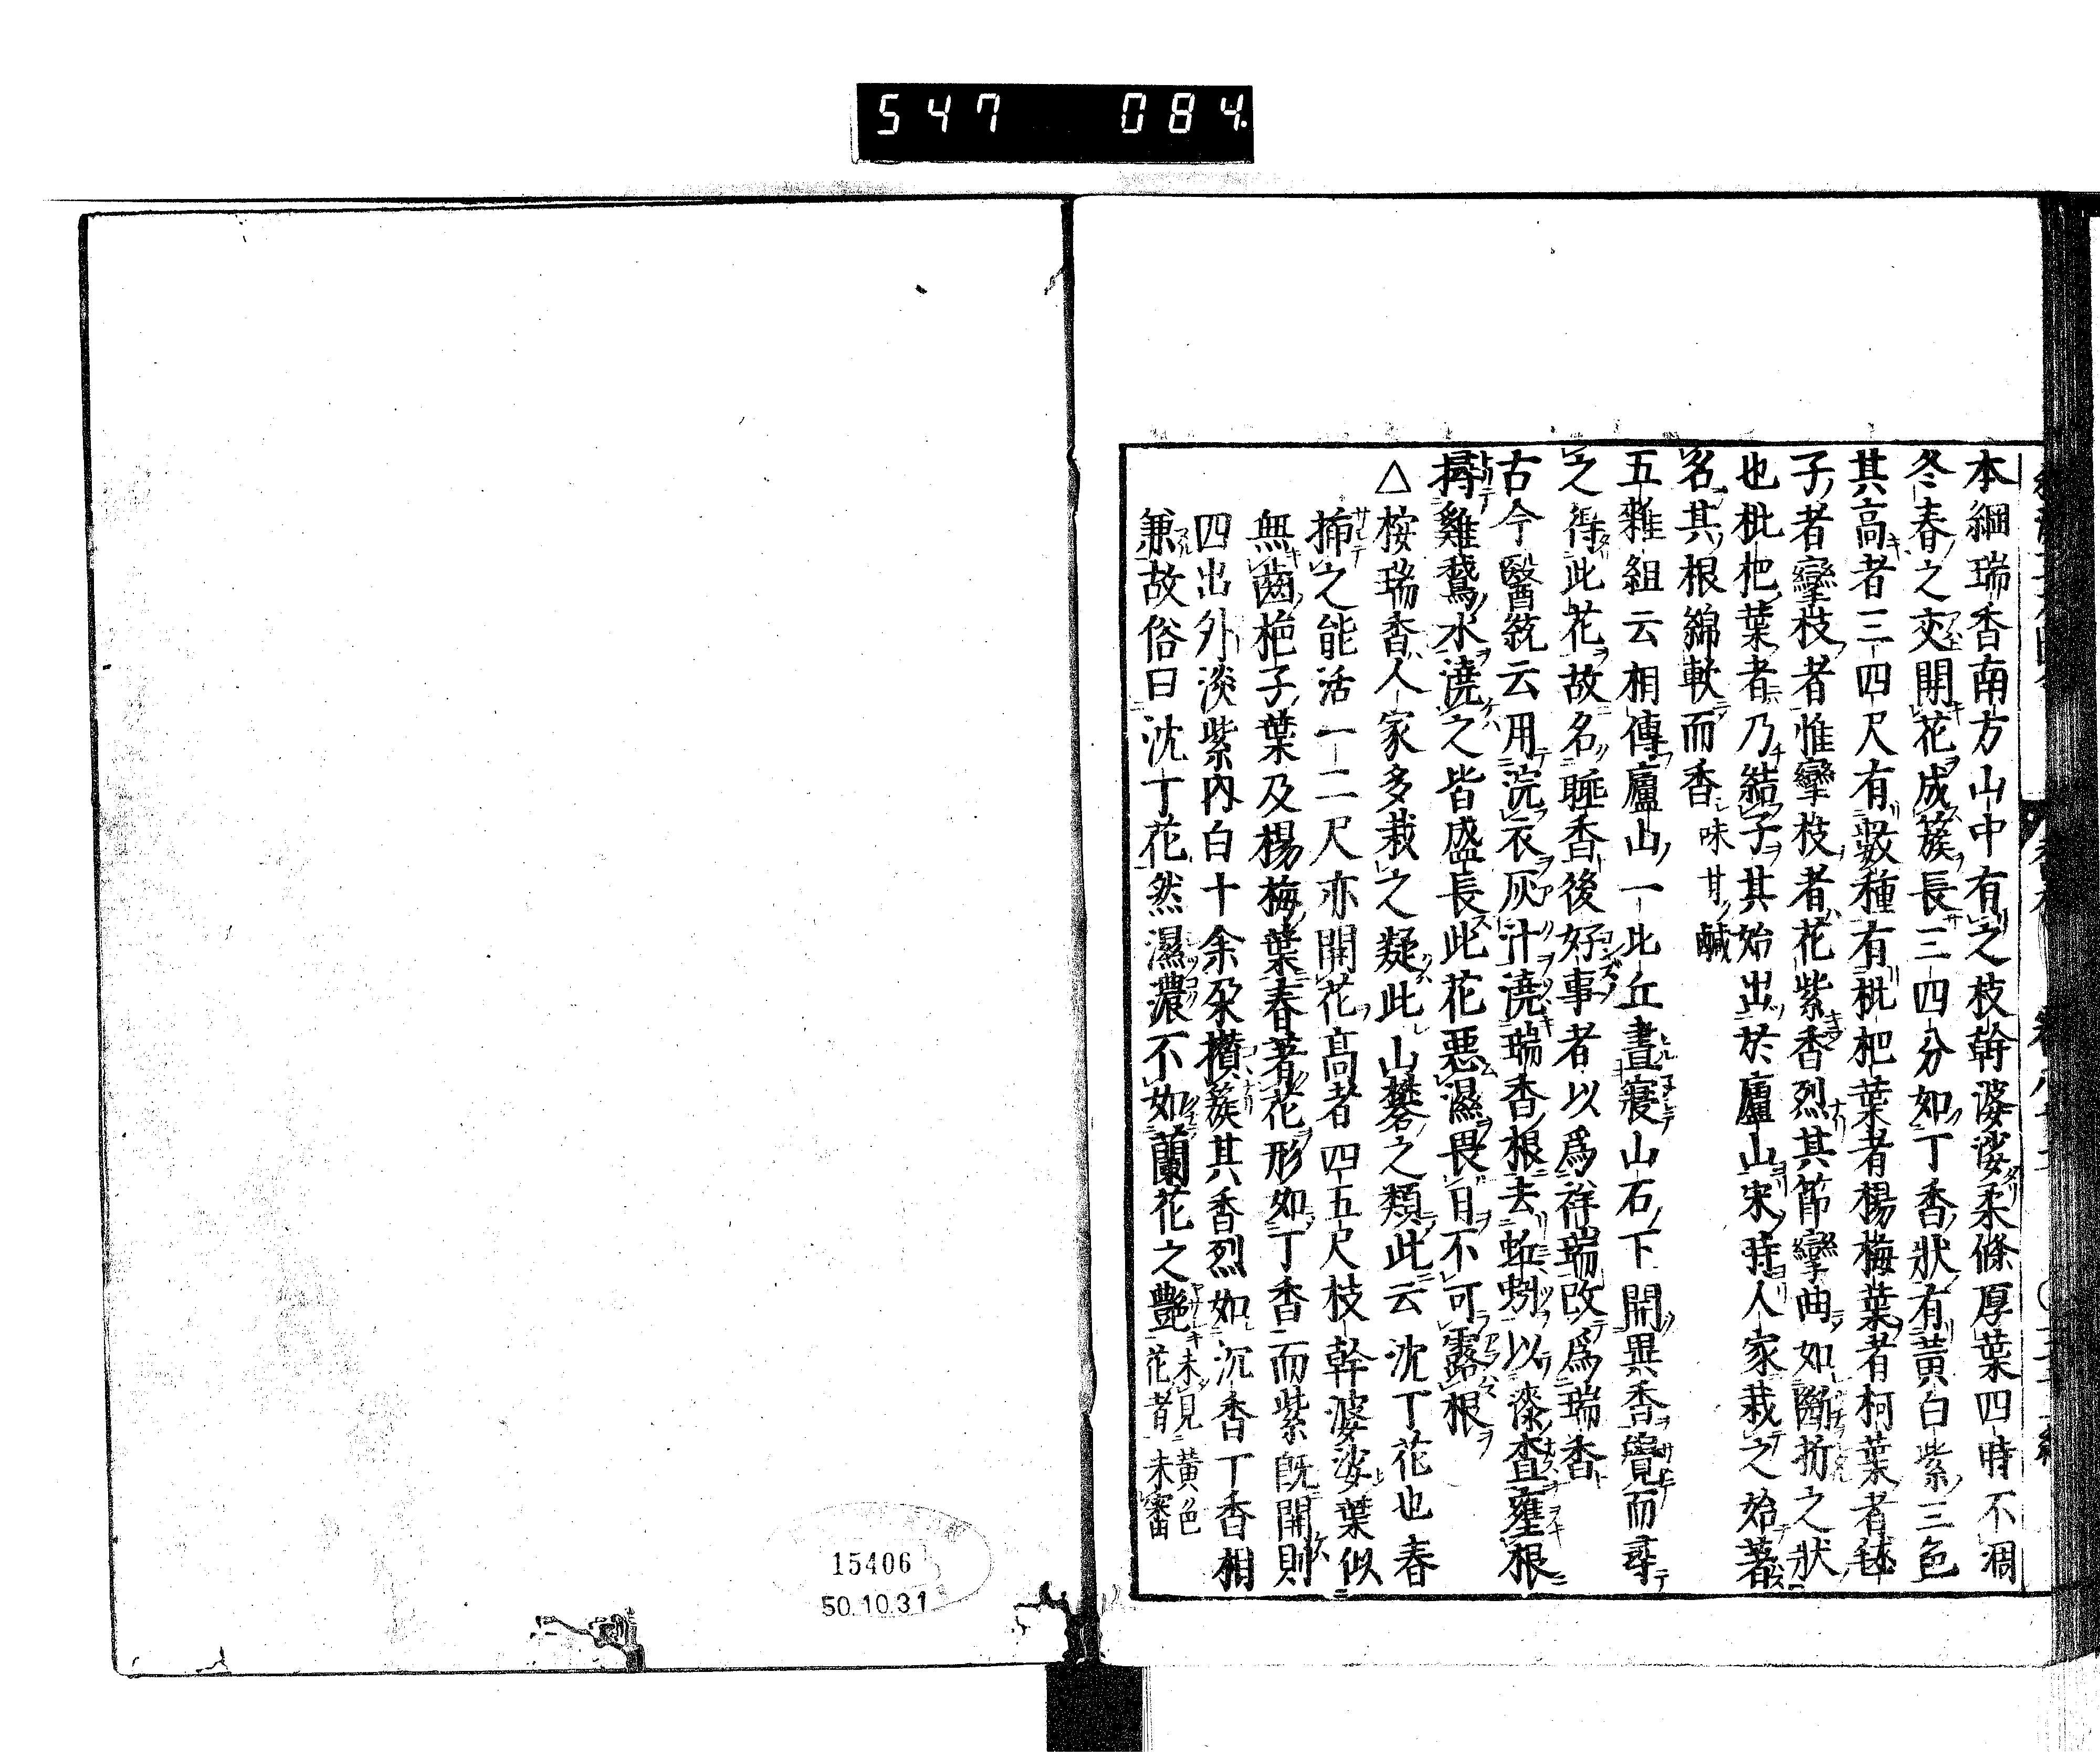 547 084
本綱瑞香南方山中有之枝幹婆娑柔條厚葉四時不凋
冬春之交開花成簇長三四分如丁香狀有黃白紫三色
其高者三四尺有數種有枇杷葉者楊梅葉者柯葉者毬
子者攣枝者惟攣枝者花紫香烈其節攣曲如斷折之狀
也枇杷葉者乃結子其始出於廬山宋時人家栽之始著
名其根綿軟而香味甘鹹
五雜組云相傳廬山一比丘晝寢山石下開異香覺而尋
之得此花故名睡香後好事者以爲祥瑞改爲瑞香
古今醫統云用浣衣灰汁澆瑞香根去蚯蚓以漆査壅根
撏雞鵞水澆之皆盛長此花惡濕畏日不可露根
△桉瑞香人家多栽之疑此山礬之類此云沈丁花也春
揷之能活一二尺亦開花髙者四五尺枝幹婆娑葉似
無齒梔子葉及楊梅葉春著花形如丁香而紫旣開則
四出外淡紫內白十余朶攅簇其香烈如沉香丁香相
兼故俗曰沈丁花然濕濃不如蘭花之艶未見黃色花者未審
15406
50.10.31